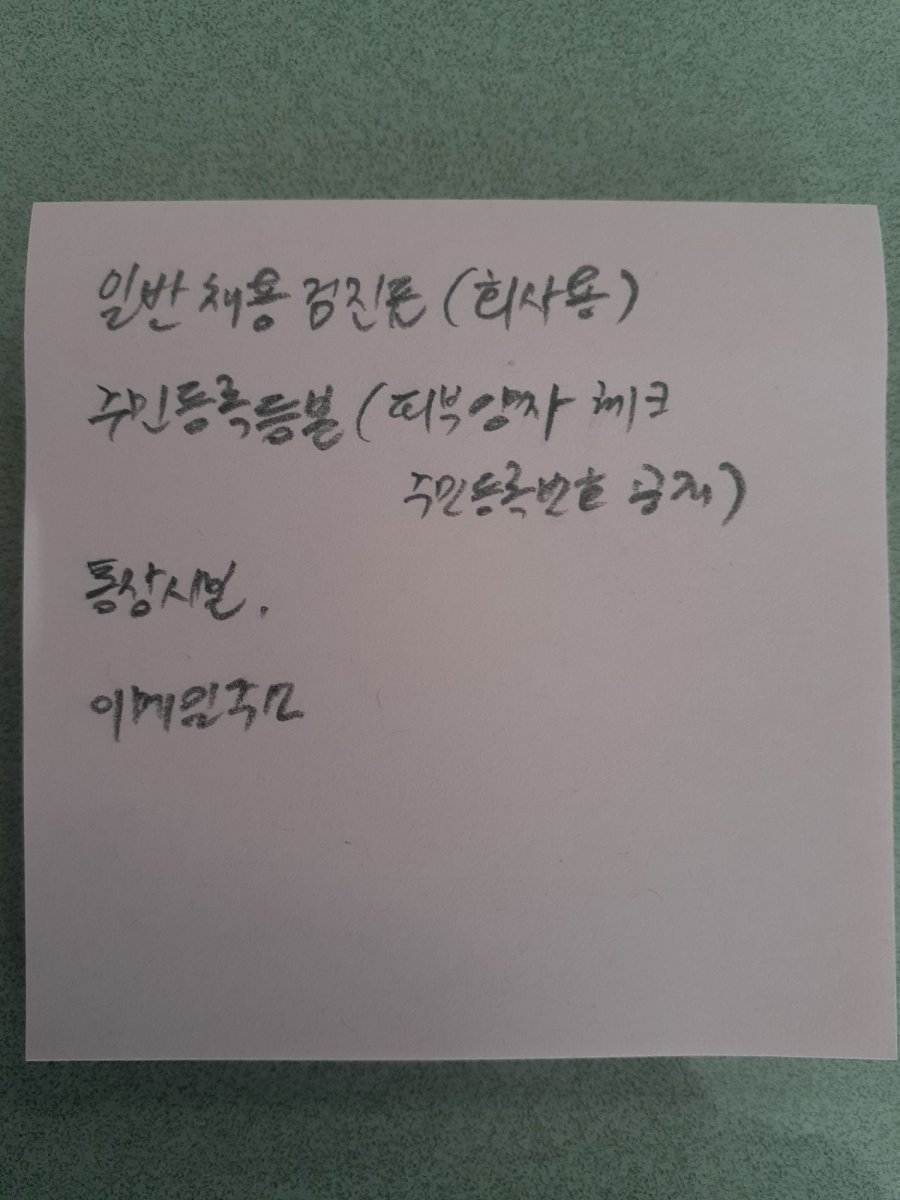 일반 채용 검진표 (회사용)
주민등록등본 (피부양자 체크
주민등록번호 공개)
통장사본.
이메일주소